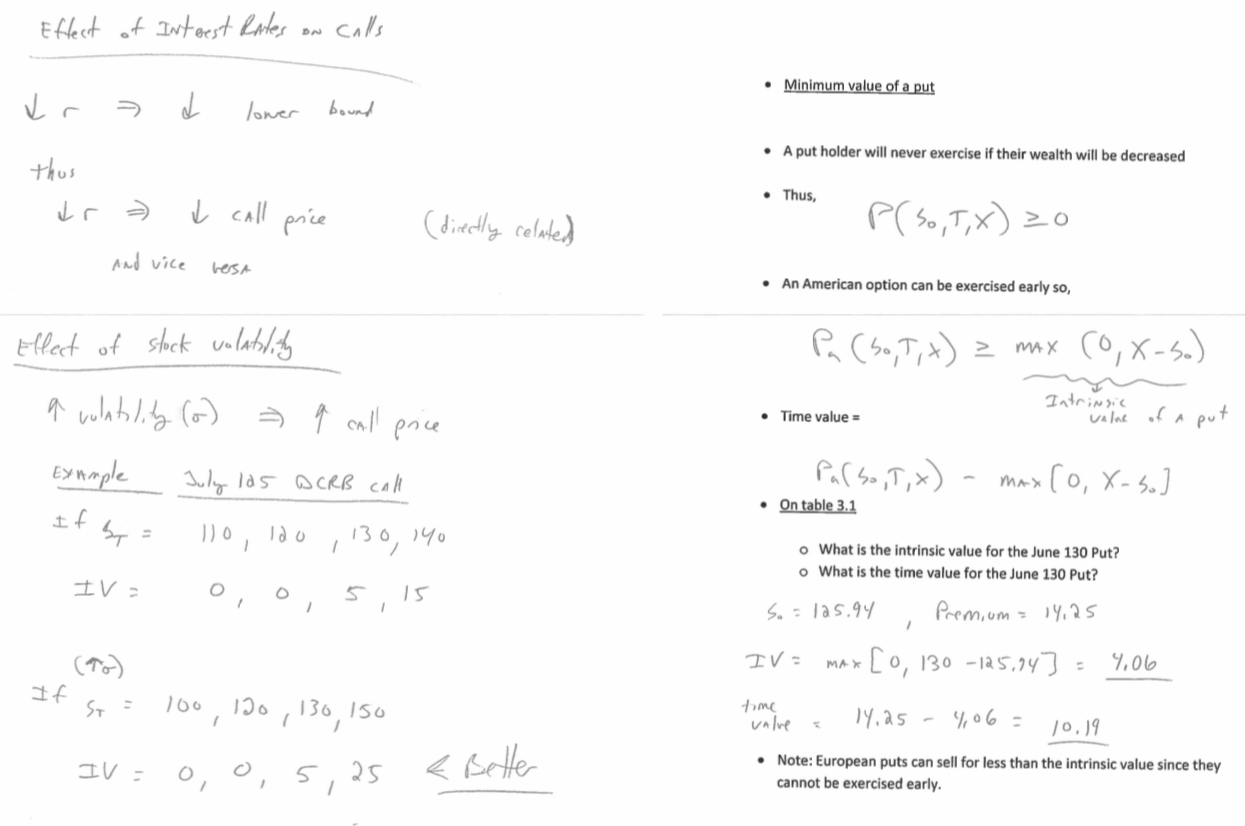 Effect of Interest Rates on Calls
↓ r ⇒ ↓ lower bound
thus
↓ r ⇒ ↓ call price (directly related)
and vice versa
Effect of stock volatility
↑ volatility (σ) ⇒ ↑ call price
Example July 125 DCRB call
If S_T = 110, 120, 130, 140
IV = 0, 0, 5, 15
(↑σ)
If S_T = 100, 120, 130, 150
IV = 0, 0, 5, 25 ← Better
• Minimum value of a put
• A put holder will never exercise if their wealth will be decreased
• Thus,
P(S₀,T,X) ≥ 0
• An American option can be exercised early so,
Pa (S₀,T,X) ≥ max (0, X-S₀)
Intrinsic
value of a put
• Time value =
Pa(S₀,T,X) - max [0, X-S₀]
• On table 3.1
o What is the intrinsic value for the June 130 Put?
o What is the time value for the June 130 Put?
S₀ = 125.94, Premium = 14.25
IV = max [0, 130 - 125.94] = 4.06
time
value = 14.25 - 4.06 = 10.19
• Note: European puts can sell for less than the intrinsic value since they
cannot be exercised early.